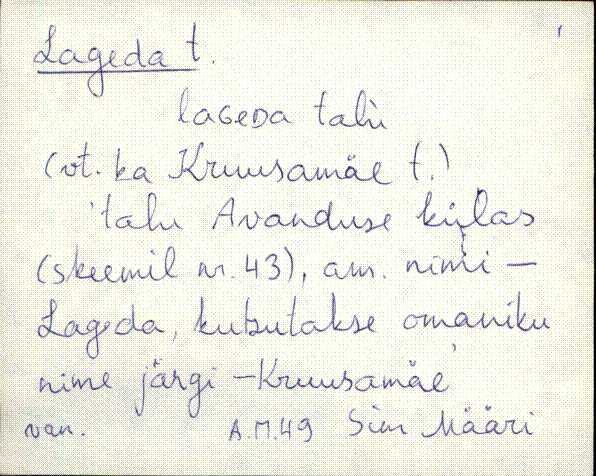 Lageda t.
lageda talu
(vt. ka Kruusamäe t.)
'talu Avanduse külas
(skeemil nr. 43), am. nimi –
Lageda, kutsutakse omaniku
nime järgi – Kruusamäe'
van. A.M.49 Sim Määri